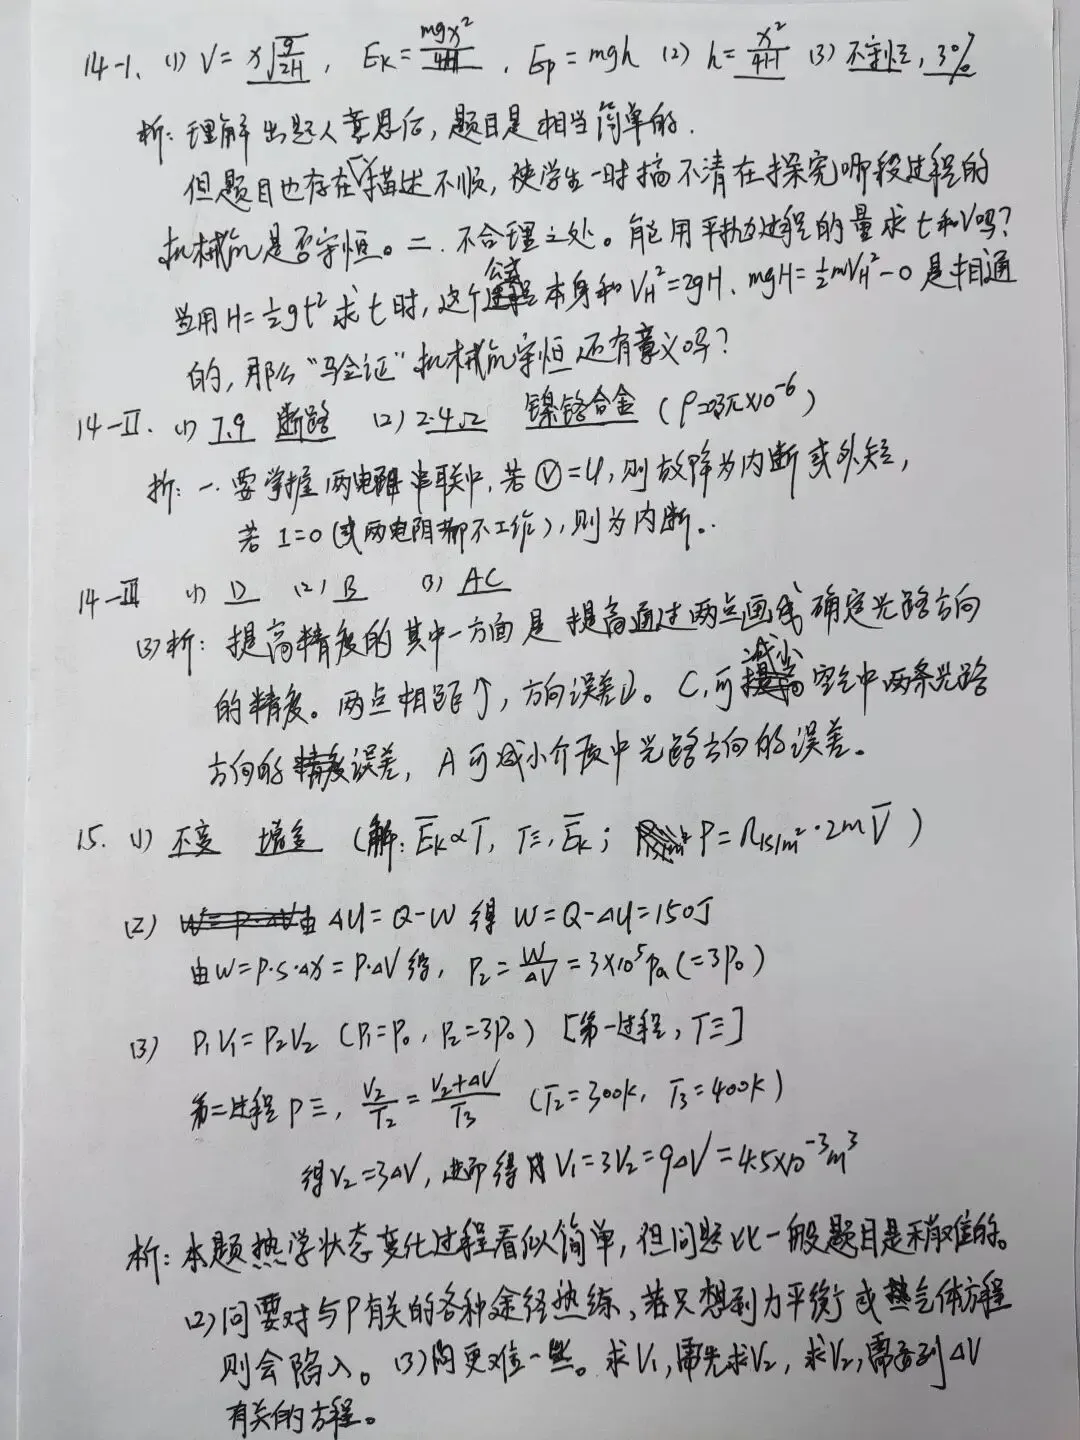 14-I. (1) V = x√(g/2H), Ek = mgx²/4H, Ep = mgh (2) h = x²/4H (3) 不守恒, 3%
析: 理解出题人意思后, 题目是相当简单的.
但题目也存在一、描述不顺, 使学生一时搞不清在探究哪段过程的
机械能是否守恒。二. 不合理之处。能用平抛过程的量求t和V吗?
当用H=½gt²求t时, 这个公式本身和V_H²=2gH、mgH=½mV_H²-0是相通
的, 那么“验证”机械能守恒还有意义吗?
14-II. (1) 7.9 断路 (2) 2.4Ω 镍铬合金 (ρ=0.3π×10⁻⁶)
析: 一. 要掌握两电阻串联中, 若Ⓥ=U, 则故障为内断或外短,
若I=0(或两电阻都不工作), 则为内断.
14-III (1) D (2) B (3) AC
(3)析: 提高精度的其中一方面是提高通过两点画线确定光路方向
的精度。两点相距↑, 方向误差↓。C,可减少空气中两条光路
方向的误差, A可减小介质中光路方向的误差。
15. (1) 不变 增多 (解: Ēk∝T, T≡, Ēk; P=n₁ₛ/ₘ²·2mV̄)
(2) 由ΔU=Q-W得 W=Q-ΔU=150J
由W=P·S·Δx=P·ΔV得, P₂=W/ΔV=3×10⁵Pa(=3P₀)
(3) P₁V₁=P₂V₂ (P₁=P₀, P₂=3P₀) [第一过程, T≡]
第二过程P≡, V₂/T₂=(V₂+ΔV)/T₃ (T₂=300K, T₃=400K)
得V₂=3ΔV, 进而得 V₁=3V₂=9ΔV=4.5×10⁻³m³
析: 本题热学状态变化过程看似简单, 但问题比一般题目是稍难的。
(2)问要对与P有关的各种途径熟练、若只想到力平衡或气体方程
则会陷入。(3)问更难一些。求V₁,需先求V₂, 求V₂,需看到ΔV
有关的方程。